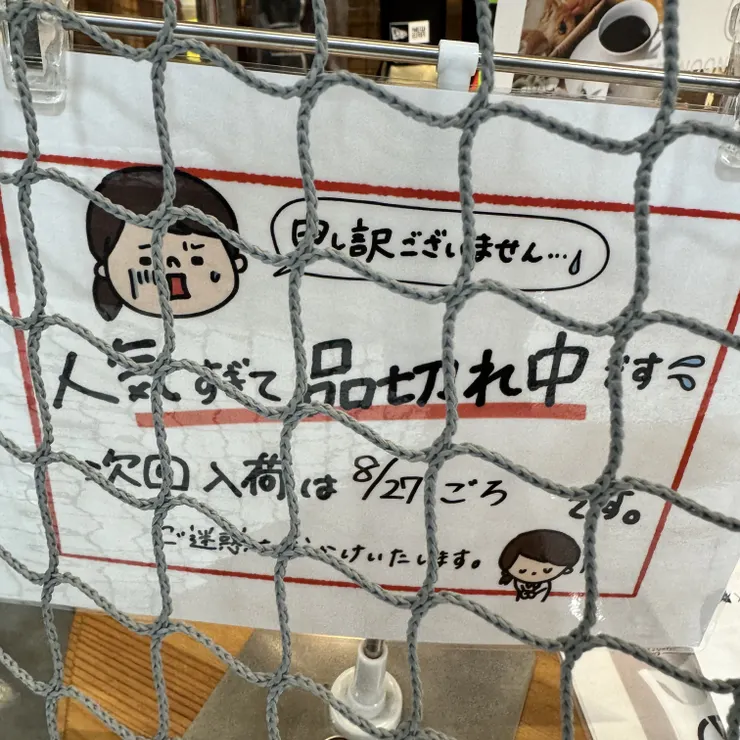 申し訳ございません…
人気すぎて品切れ中です
次回入荷は8/27ごろです。
ご迷惑おかけいたします。